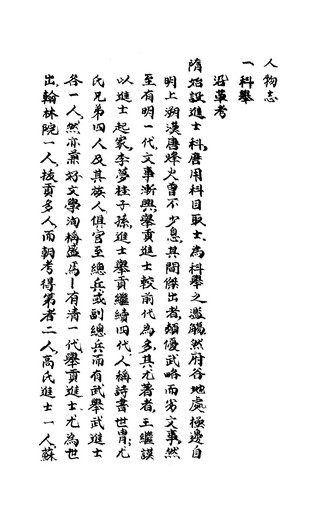 人物志
一科舉
沿革考
隋始設進士科唐用科目取士為科舉之濫觴然府谷地處極邊自
明上溯漢唐烽火曾不少息其間傑出者頗優武略而劣文事然
至有明一代文事漸興舉貢進士較前代為多其尤著者王繼謨
以進士起家李夢桂子孫進士舉貢繼續四代人稱詩書世胄尤
氏兄弟四人及其族人俱官至總兵或副總兵而有武舉武進士
各一人然亦蕭好文學洵稱盛馬一有清一代舉貢進士尤為世
出翰林院一人拔貢多人而朝考得第者二人高氏進士一人蘇